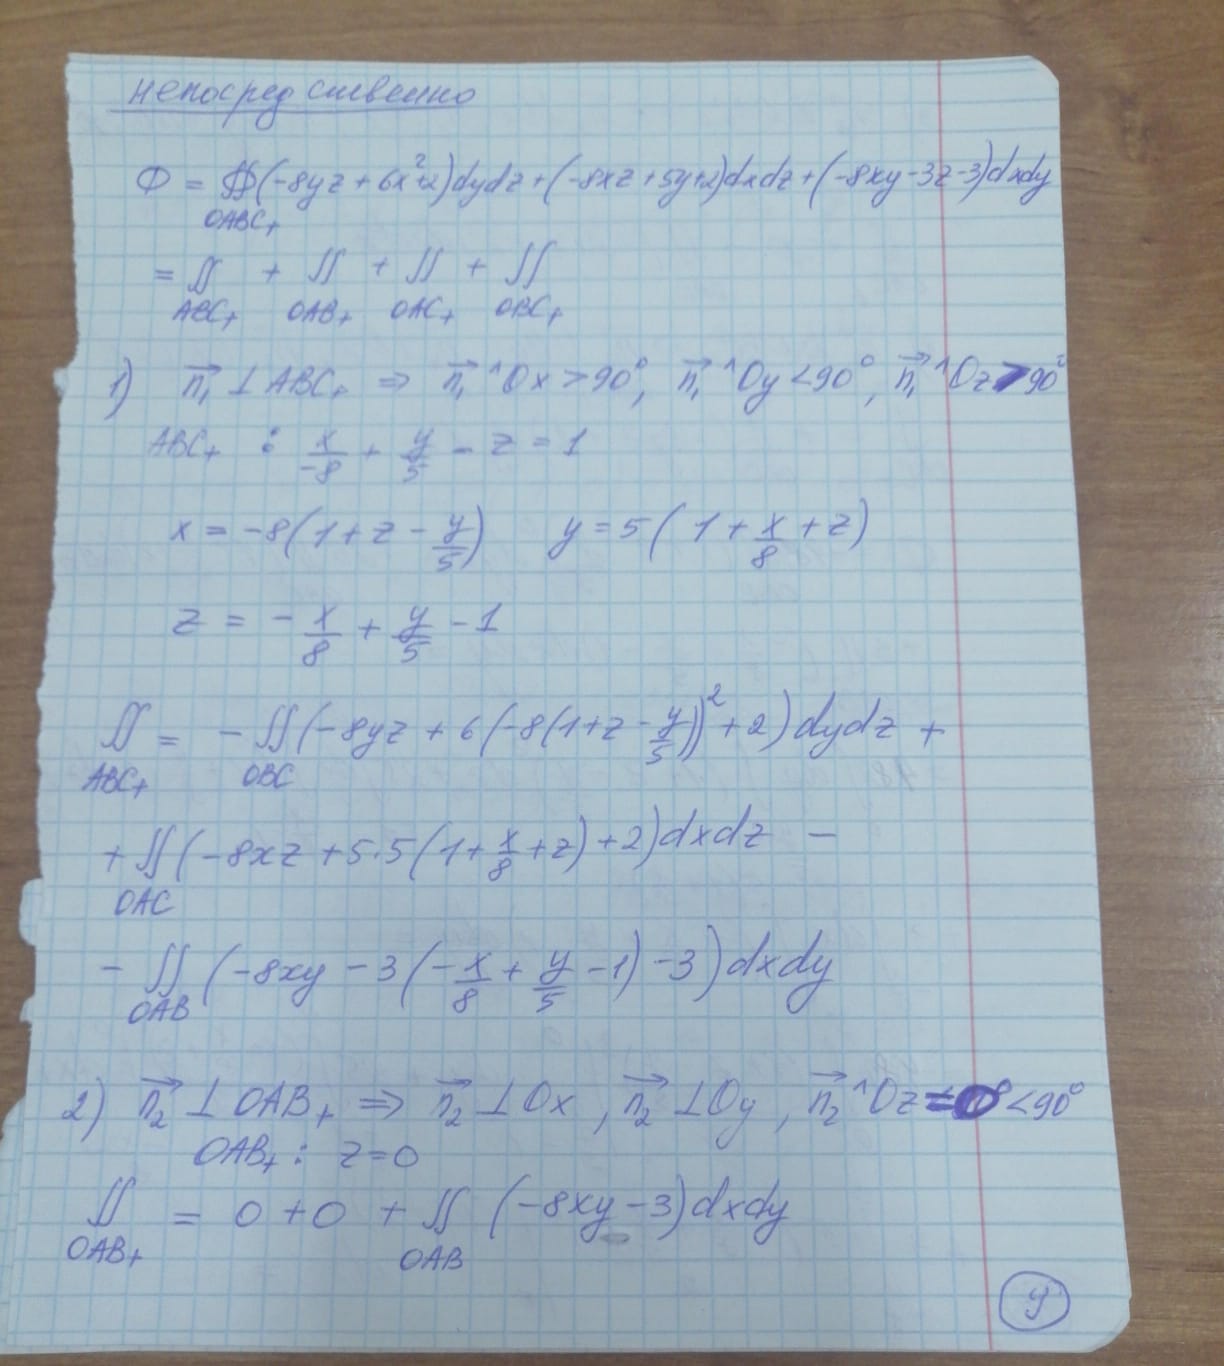 непосредственно
Ф = ∯(-8yz + 6x²+2)dydz + (-8xz + 5y+2)dxdz + (-8xy - 3z - 3)dxdy
OABC₊
= ∬ + ∬ + ∬ + ∬
ABC₊ OAB₊ OAC₊ OBC₊
1) n₁⃗ ⊥ ABC₊ ⇒ n₁⃗ ^ Ox > 90°, n₁⃗ ^ Oy < 90°, n₁⃗ ^ Oz > 90°
ABC₊ : x/-8 + y/5 - z = 1
x = -8(1 + z - y/5) y = 5(1 + x/8 + z)
z = - x/8 + y/5 - 1
∬ = - ∬(-8yz + 6(-8(1+z - y/5))² + 2)dydz +
ABC₊ OBC
+ ∬(-8xz + 5·5(1 + x/8 + z) + 2)dxdz -
OAC
- ∬(-8xy - 3(- x/8 + y/5 - 1) - 3)dxdy
OAB
2) n₂⃗ ⊥ OAB₊ ⇒ n₂⃗ ⊥ Ox, n₂⃗ ⊥ Oy, n₂⃗ ^ Oz < 90°
OAB₊ : z = 0
∬ = 0 + 0 + ∬ (-8xy - 3)dxdy
OAB₊ OAB
9